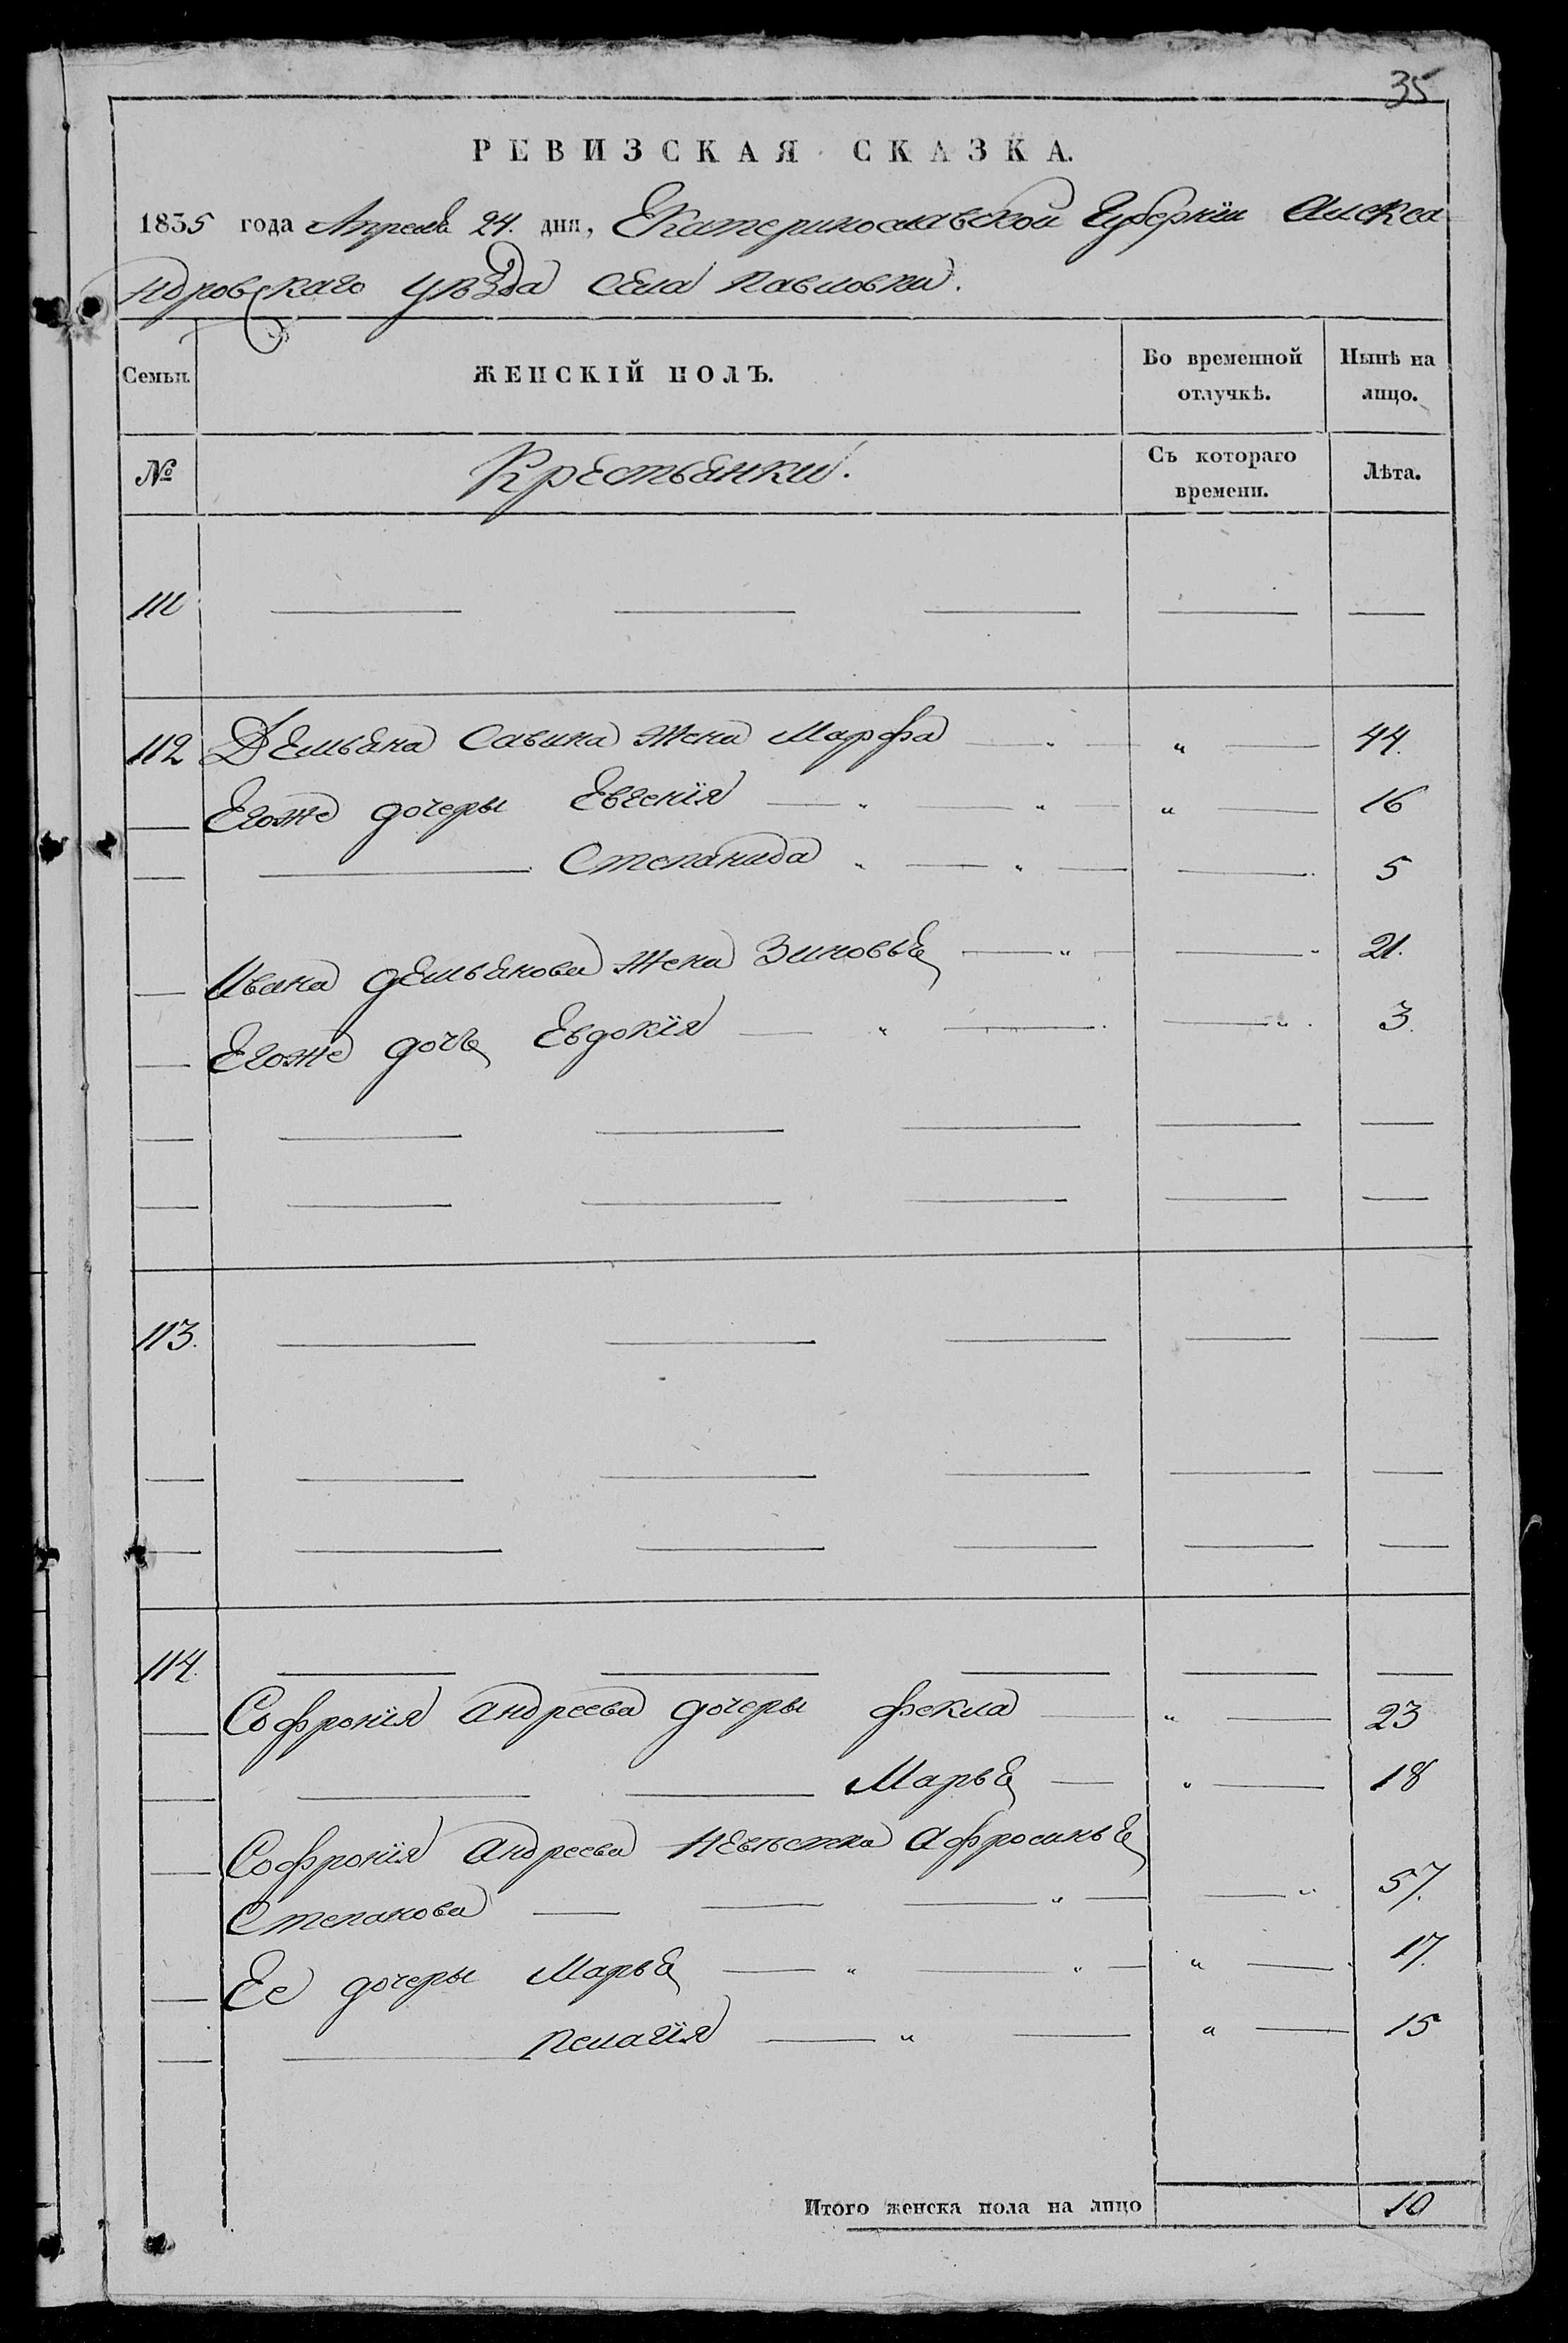 35
РЕВИЗСКАЯ СКАЗКА.
1835 года Апреля 24. дня, Екатеринославской Губернїи Алекса
ндровскаго уѣзда села Павловки.
Семьи. ЖЕНСКІЙ ПОЛЪ. Во временной отлучкѣ. Нынѣ на лицо.
№ Крестьянки. Съ котораго времени. Лѣта.
111 — — — — —
112 Демьяна Савина жена Марфа — " — " — 44.
— Егоже дочеры Евгенїя — " — " — " — 16
— — Степанида " — " — — 5
— Ивана Демьянова жена Зиновья — " — — " 21.
— Егоже дочь Евдокїя — " — — " 3.
— — — — — —
— — — — — —
113. — — — — —
— — — — — —
— — — — — —
114. — — — — —
— Софронїя Андреева дочеры Фекла — " — 23
— — — Марья — " — 18
— Софронїя Андреева невѣстка Афросинья
Степанова — — — " — — " 57.
— Ее дочеры Марья — " — " — " — 17.
— — Пелагїя — " — " — 15
Итого женска пола на лицо 10